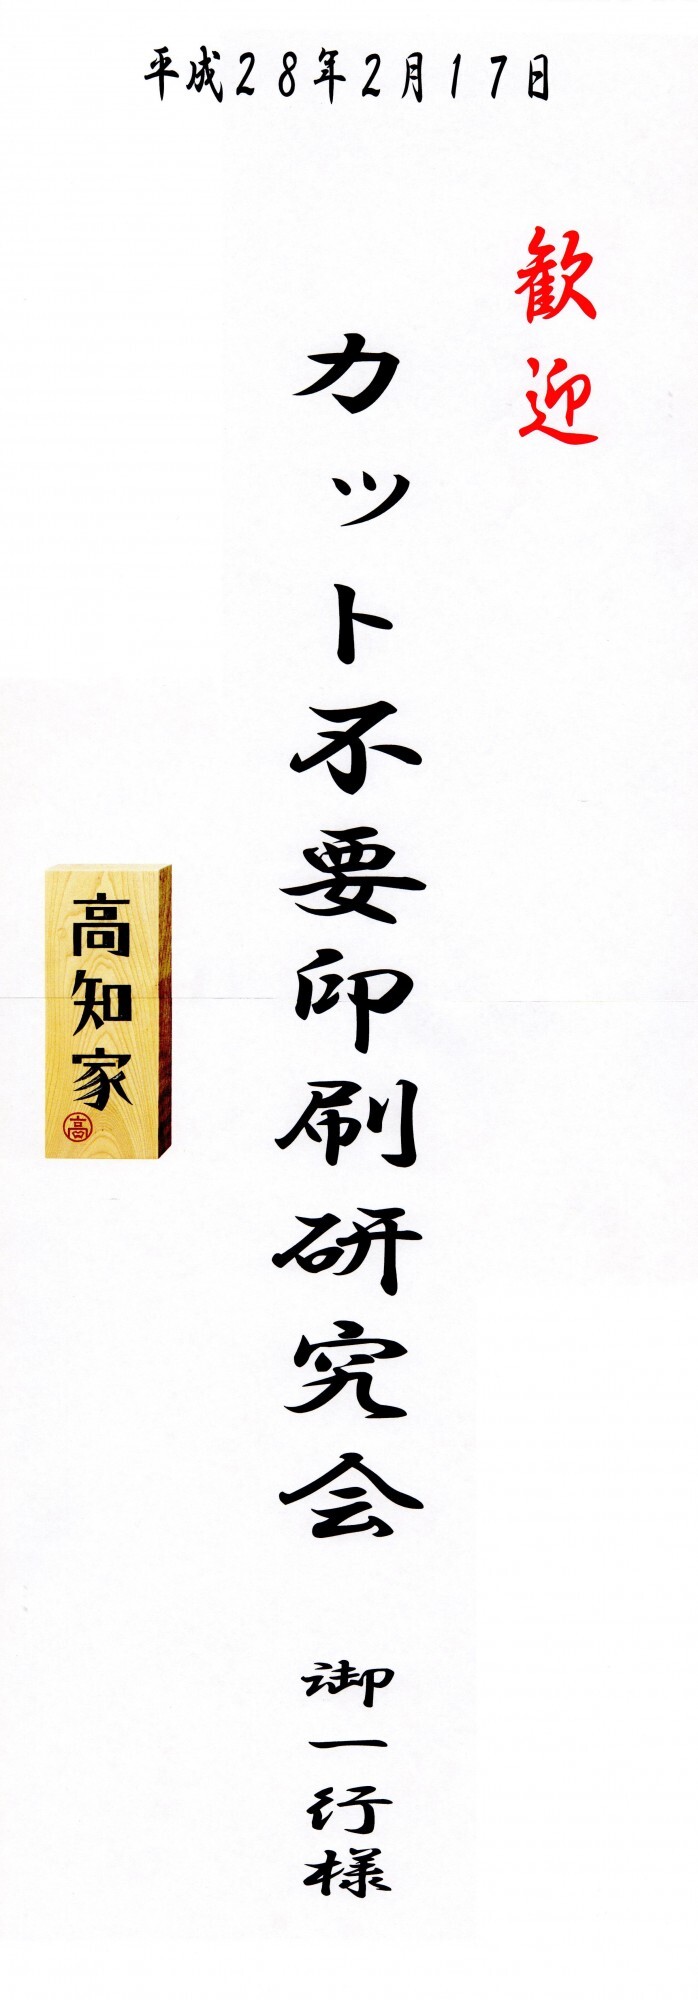 平成２８年２月１７日
歓迎
カット不要印刷研究会 御一行様
高知家
高